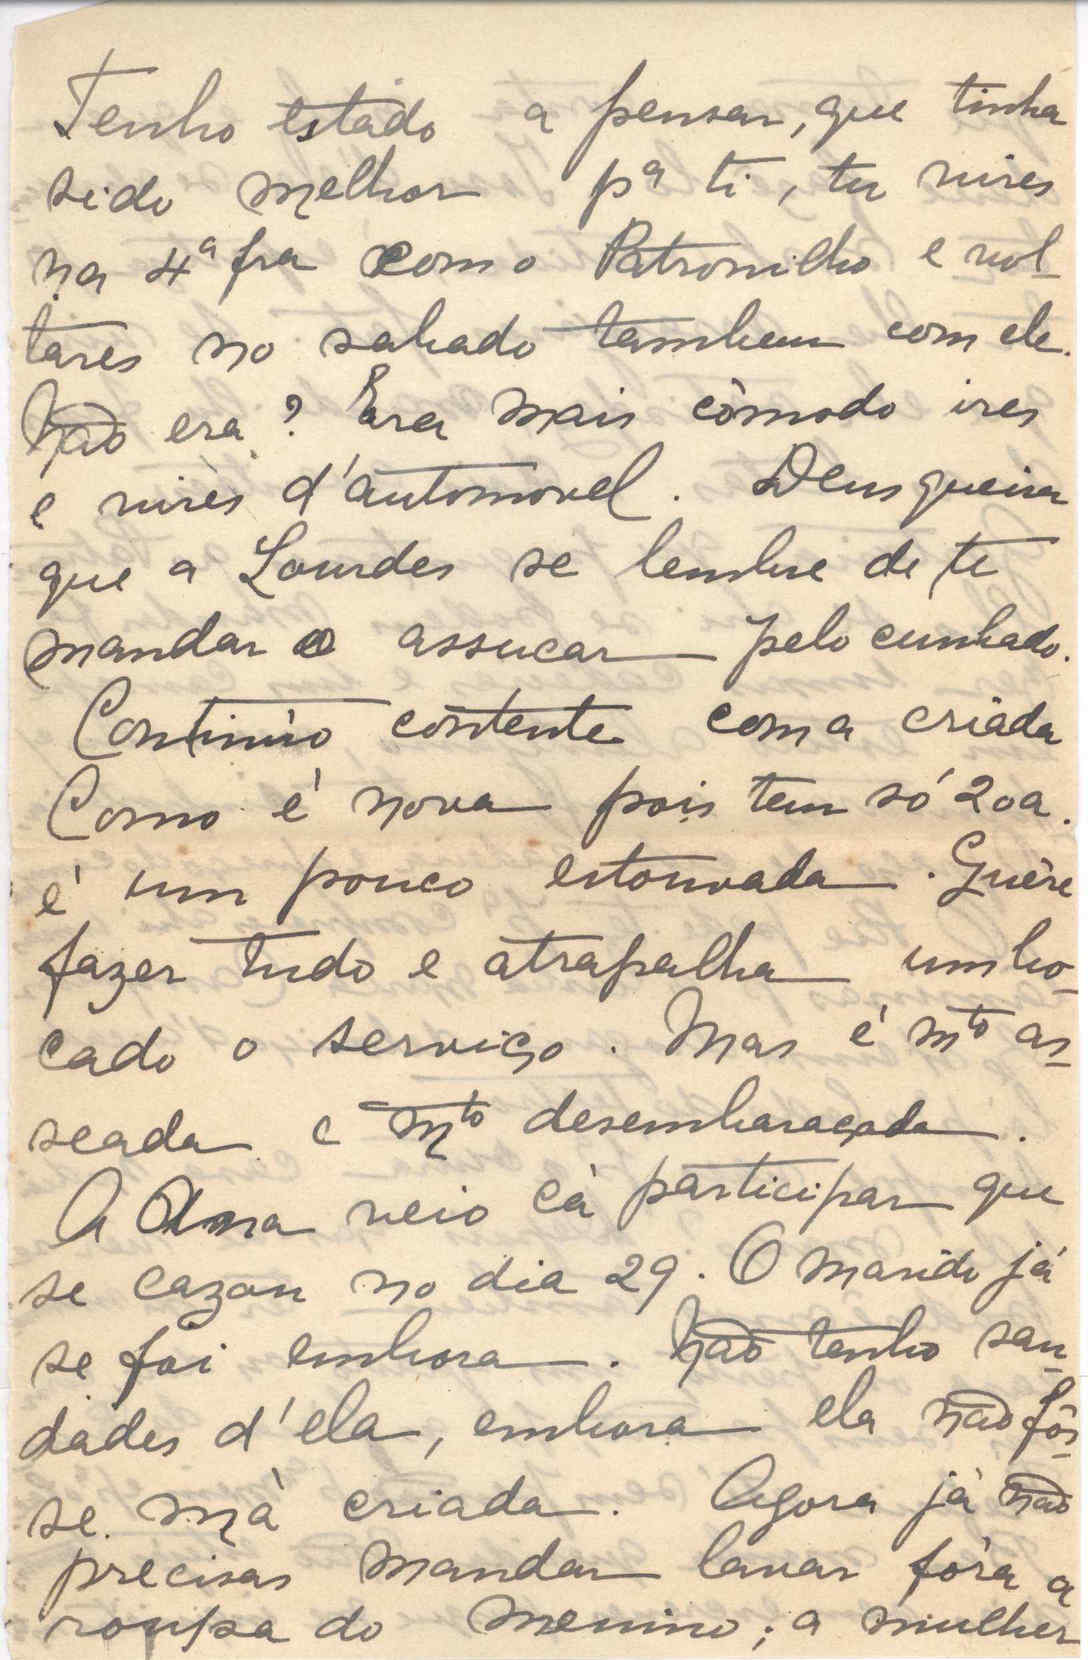 Tenho estado a pensar, que tinha
sido melhor pª ti, tu vires
na 4ª fra com o Patronilho e vol-
tares no sabado tambem com ele.
Não era? Era mais còmodo ires
e vires d'automovel. Deus queira
que a Lourdes se lembre de te
mandar o assucar pelo cunhado.
Continúo contente com a criada
Como é nova pois tem só 20 a.
é um pouco estouvada. Quère
fazer tudo e atrapalha um bo-
cado o serviço. Mas é mto as-
seada e mto desembaraçada.
A Alma veio cà participar que
se cazou no dia 29. O marido já
se foi embora. Não tenho sau-
dades d'ela, embora ela não fôs-
se mà criada. Agora jà não
precisas mandar lavar fóra a
roupa do menino; a mulher